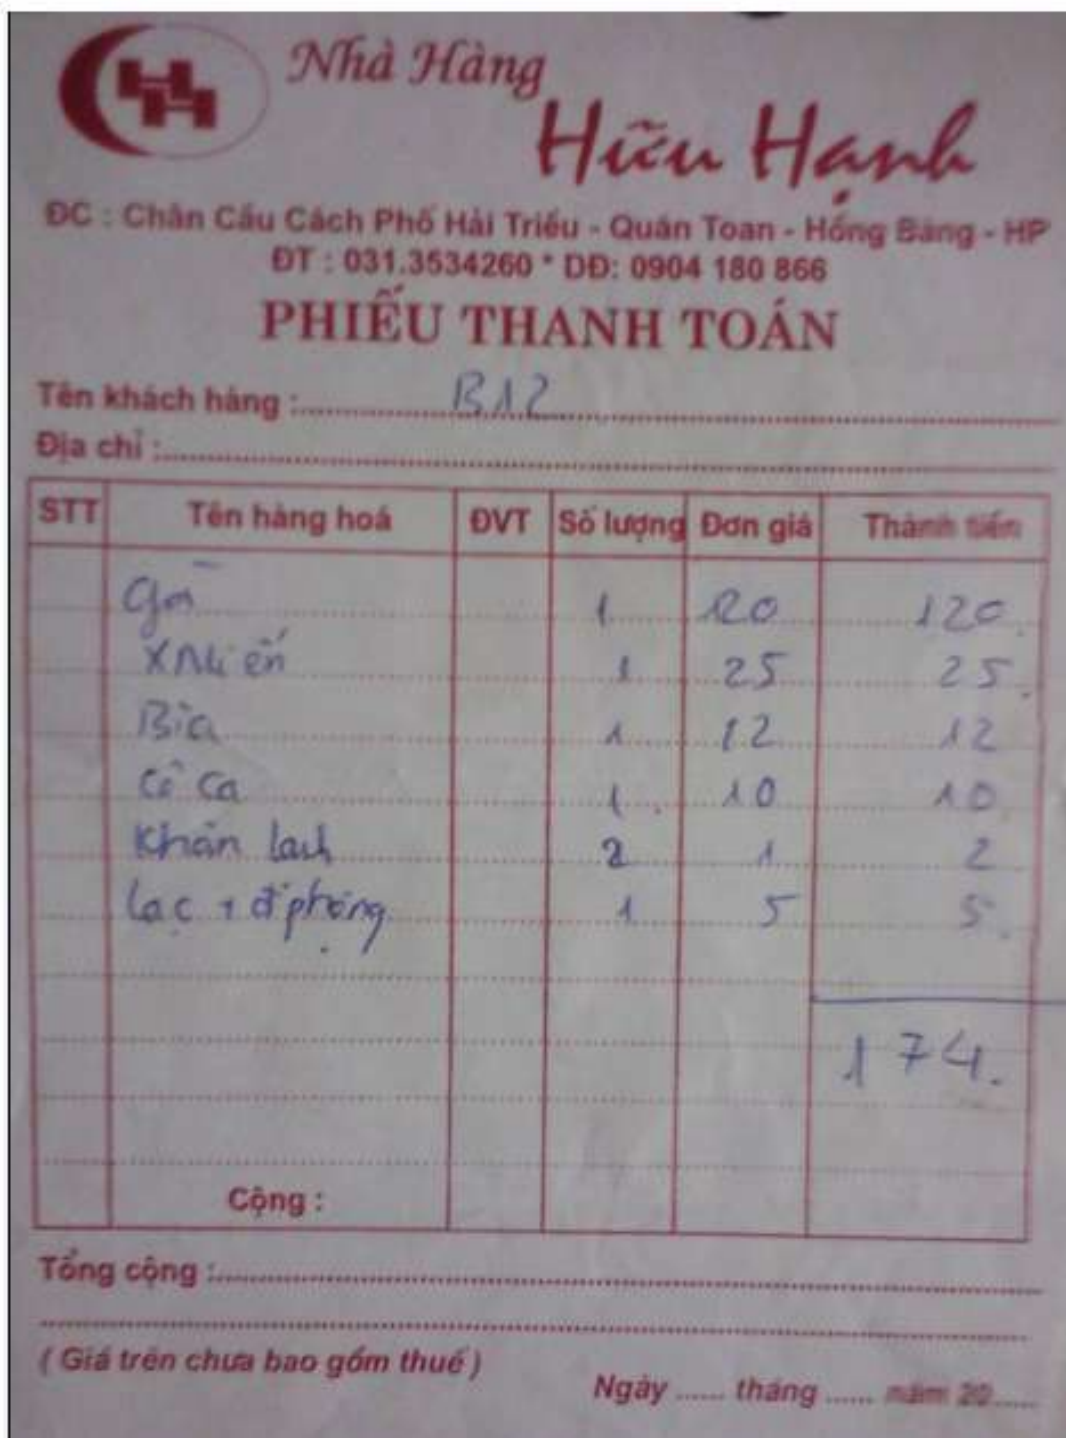 HH Nhà Hàng
Hữu Hạnh
ĐC : Chân Cầu Cách Phố Hải Triều - Quán Toan - Hồng Bàng - HP
ĐT : 031.3534260 * DĐ: 0904 180 866
PHIẾU THANH TOÁN
Tên khách hàng : B12
Địa chỉ :
STT Tên hàng hoá ĐVT Số lượng Đơn giá Thành tiền
Gà 1 120 120
1 25 25
Bia 1 12 12
Cô Ca 1 10 10
Khăn lạnh 2 1 2
Lạc + 1 5 5
174
Cộng :
Tổng cộng :
( Giá trên chưa bao gồm thuế )
Ngày ...... tháng ...... năm 20......